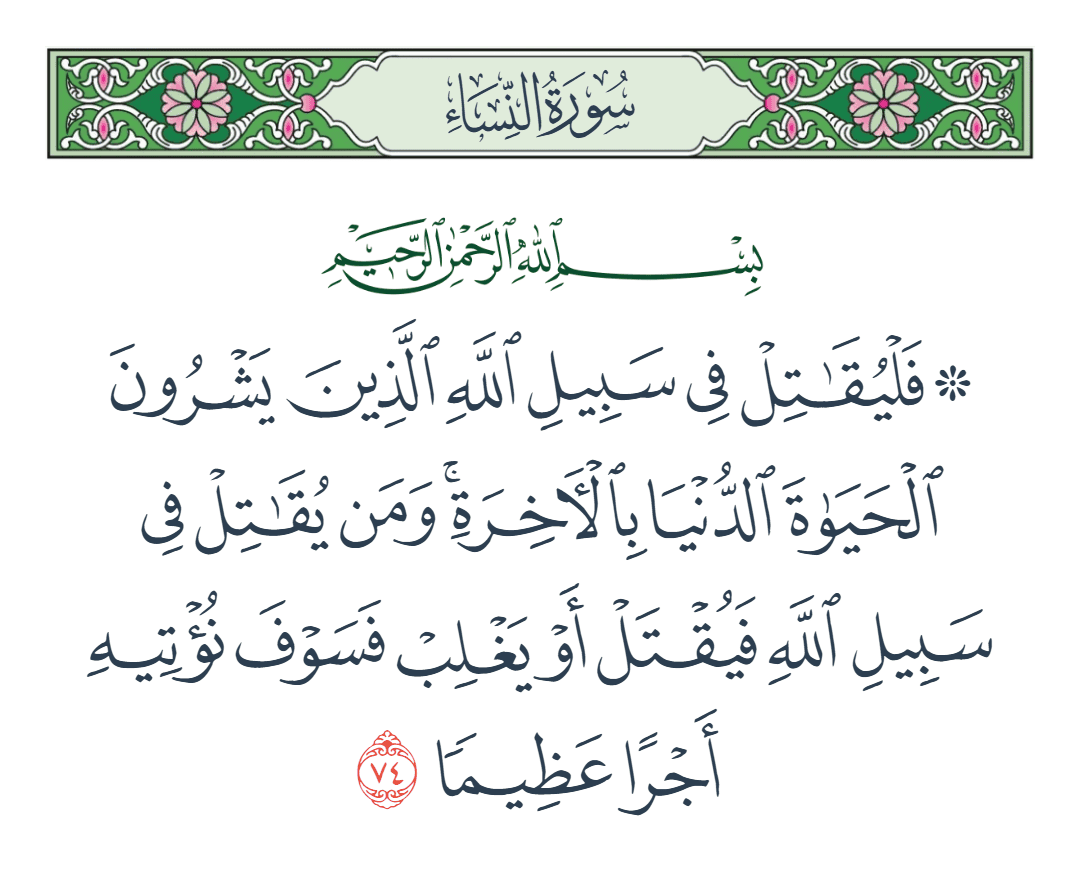 سُورَةُ النِّسَاءِ
بِسْمِ ٱللَّهِ ٱلرَّحْمَٰنِ ٱلرَّحِيمِ
۞ فَلْيُقَـٰتِلْ فِى سَبِيلِ ٱللَّهِ ٱلَّذِينَ يَشْرُونَ
ٱلْحَيَوٰةَ ٱلدُّنْيَا بِٱلْأَخِرَةِ ۚ وَمَن يُقَـٰتِلْ فِى
سَبِيلِ ٱللَّهِ فَيُقْتَلْ أَوْ يَغْلِبْ فَسَوْفَ نُؤْتِيهِ
أَجْرًا عَظِيمًا ٧٤